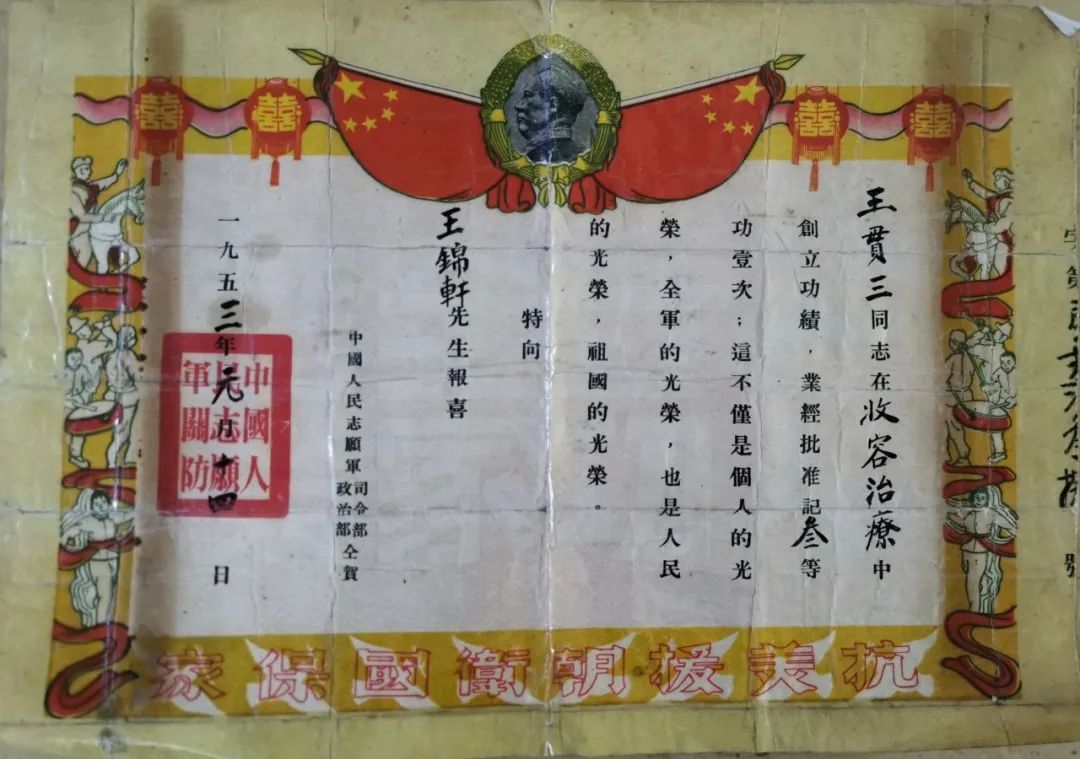 王贯三同志在收容治療中
創立功績，業經批准記叁等
功壹次；這不僅是個人的光
榮，全軍的光榮，也是人民
的光榮，祖國的光榮。
特向
王錦軒先生報喜
中國人民志願軍司令部
政治部仝賀
一九五三年元月十四日
中國人
民志願
軍關防
抗美援朝衛國保家
囍
囍
囍
囍
字第
號